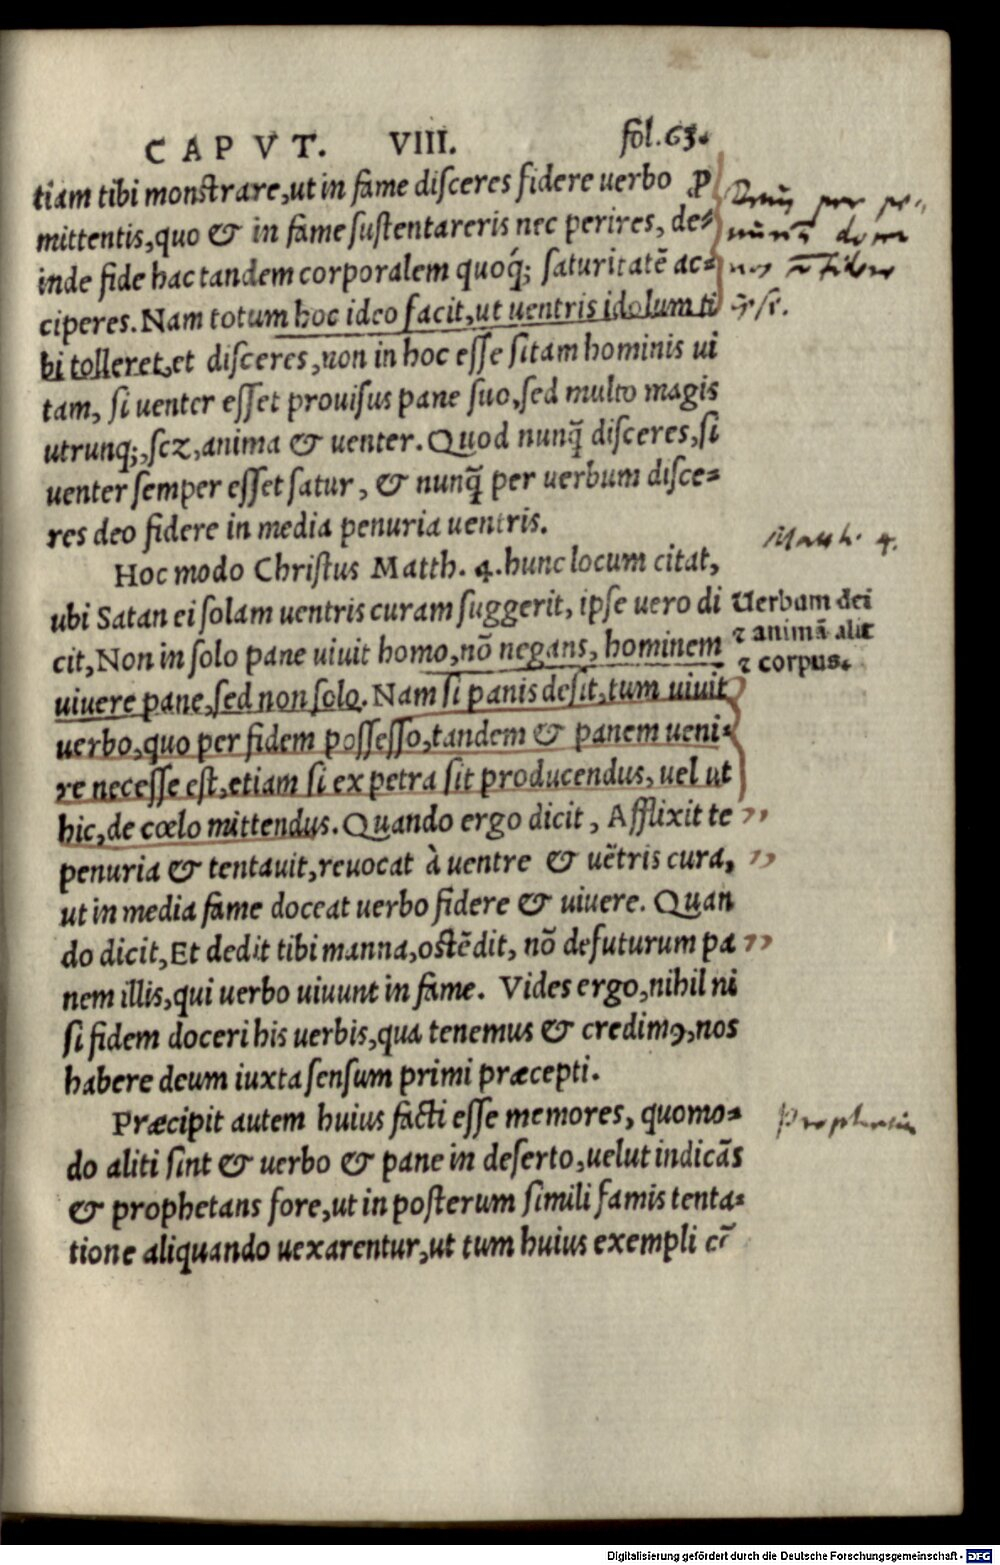 CAPVT. VIII. fol.63.
tiam tibi monſtrare,ut in fame diſceres fidere uerbo ꝓ
mittentis,quo & in fame ſuſtentareris nec perires, de⸗
inde fide hac tandem corporalem quoq́; ſaturitatē ac⸗
ciperes. Nam totum hoc ideo facit,ut uentris idolum ti
bi tolleret,et diſceres,non in hoc eſſe ſitam hominis ui
tam, ſi uenter eſſet prouiſus pane ſuo,ſed multo magis
utrunq;,ſcz,anima & uenter. Quod nunq̄ diſceres,ſi
uenter ſemper eſſet ſatur, & nunq̄ per uerbum diſce⸗
res deo fidere in media penuria uentris.
Hoc modo Chriſtus Matth. 4.hunc locum citat,
Matth. 4.
ubi Satan ei ſolam uentris curam ſuggerit, ipſe uero di
cit,Non in ſolo pane uiuit homo,nō negans, hominem
uiuere pane,ſed non ſolo. Nam ſi panis deſit,tum uiuit
uerbo,quo per fidem poſſeſſo,tandem & panem ueni⸗
re neceſſe eſt,etiam ſi ex petra ſit producendus, uel ut
hic,de cœlo mittendus. Quando ergo dicit, Afflixit te
penuria & tentauit,reuocat à uentre & uētris cura,
ut in media fame doceat uerbo fidere & uiuere. Quan
do dicit,Et dedit tibi manna,oſtēdit, nō defuturum pa
nem illis,qui uerbo uiuunt in fame. Vides ergo,nihil ni
ſi fidem doceri his uerbis,qua tenemus & credimꝰ,nos
habere deum iuxta ſenſum primi præcepti.
Verbum dei
⁊ animā alit
⁊ corpus.
Præcipit autem huius facti eſſe memores, quomo⸗
do aliti ſint & uerbo & pane in deſerto,uelut indicās
& prophetans fore,ut in poſterum ſimili famis tenta⸗
tione aliquando uexarentur,ut tum huius exempli
Digitalisierung gefördert durch die Deutsche Forschungsgemeinschaft - DFG